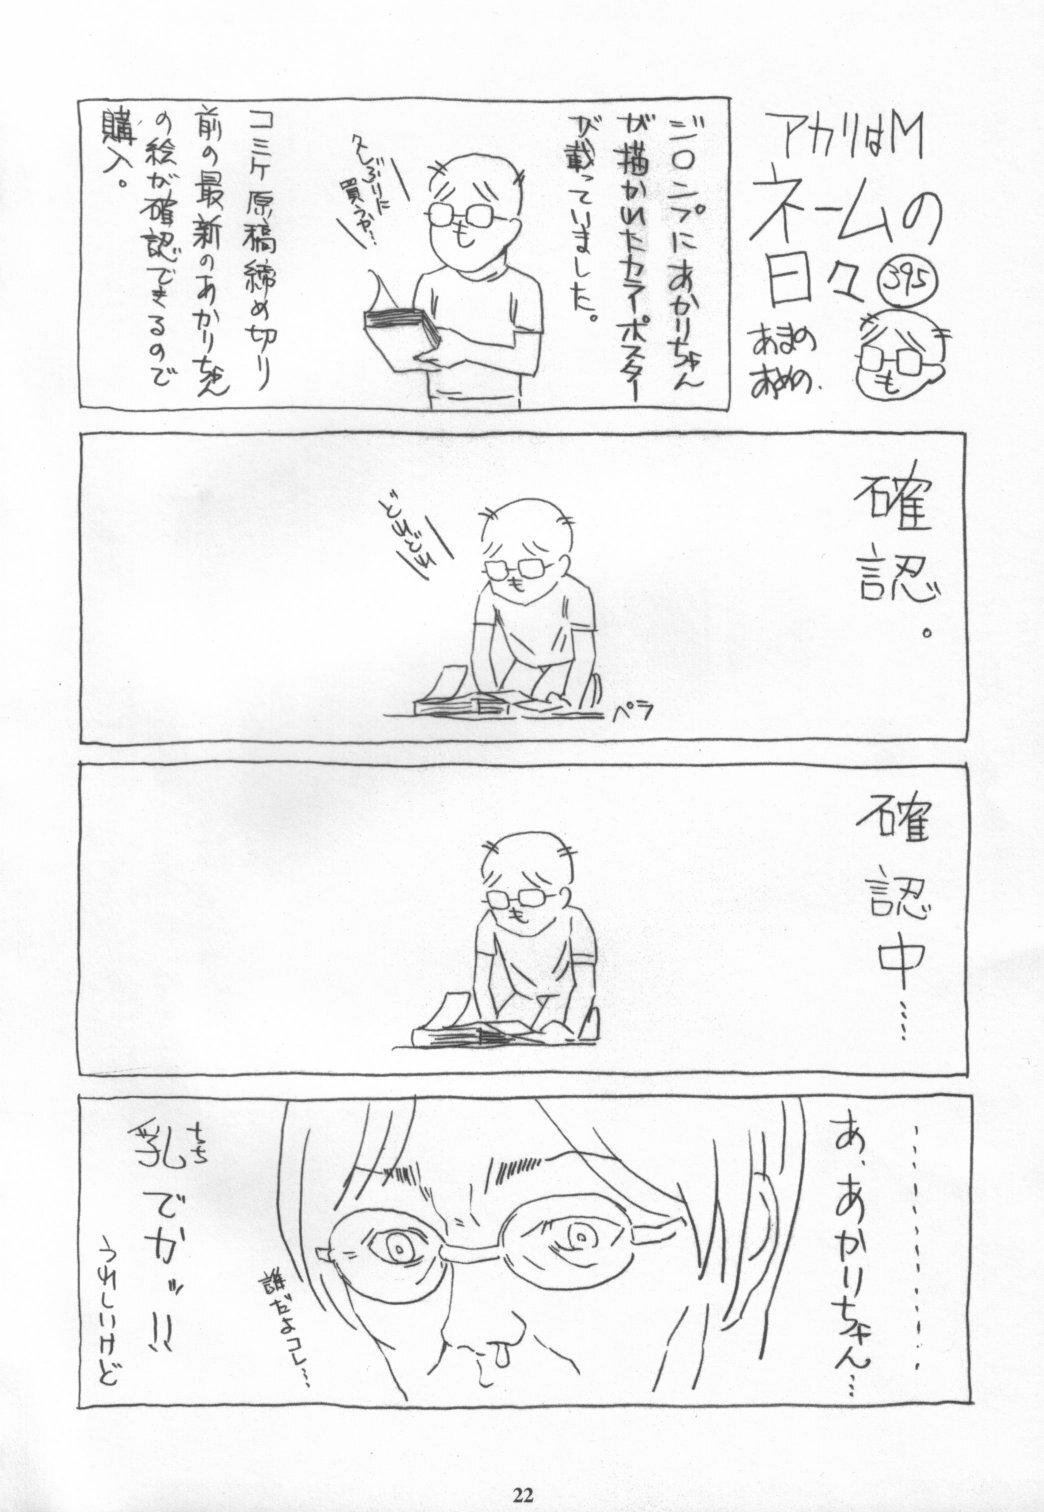 アカリはM
ネームの
日々 395
あまの
あめの.
ジ○ンプにあかりちゃん
が描かれたカラーポスター
が載っていました。
久しぶりに
買うか…
コミケ原稿締め切り
前の最新のあかりちゃん
の絵が確認できるので
購入。
確認。
どれどれ
ペラ
確認中……
…………………
あ、あかりちゃん…
誰だよコレ…
乳でかッ!!
ちち
うれしいけど
22